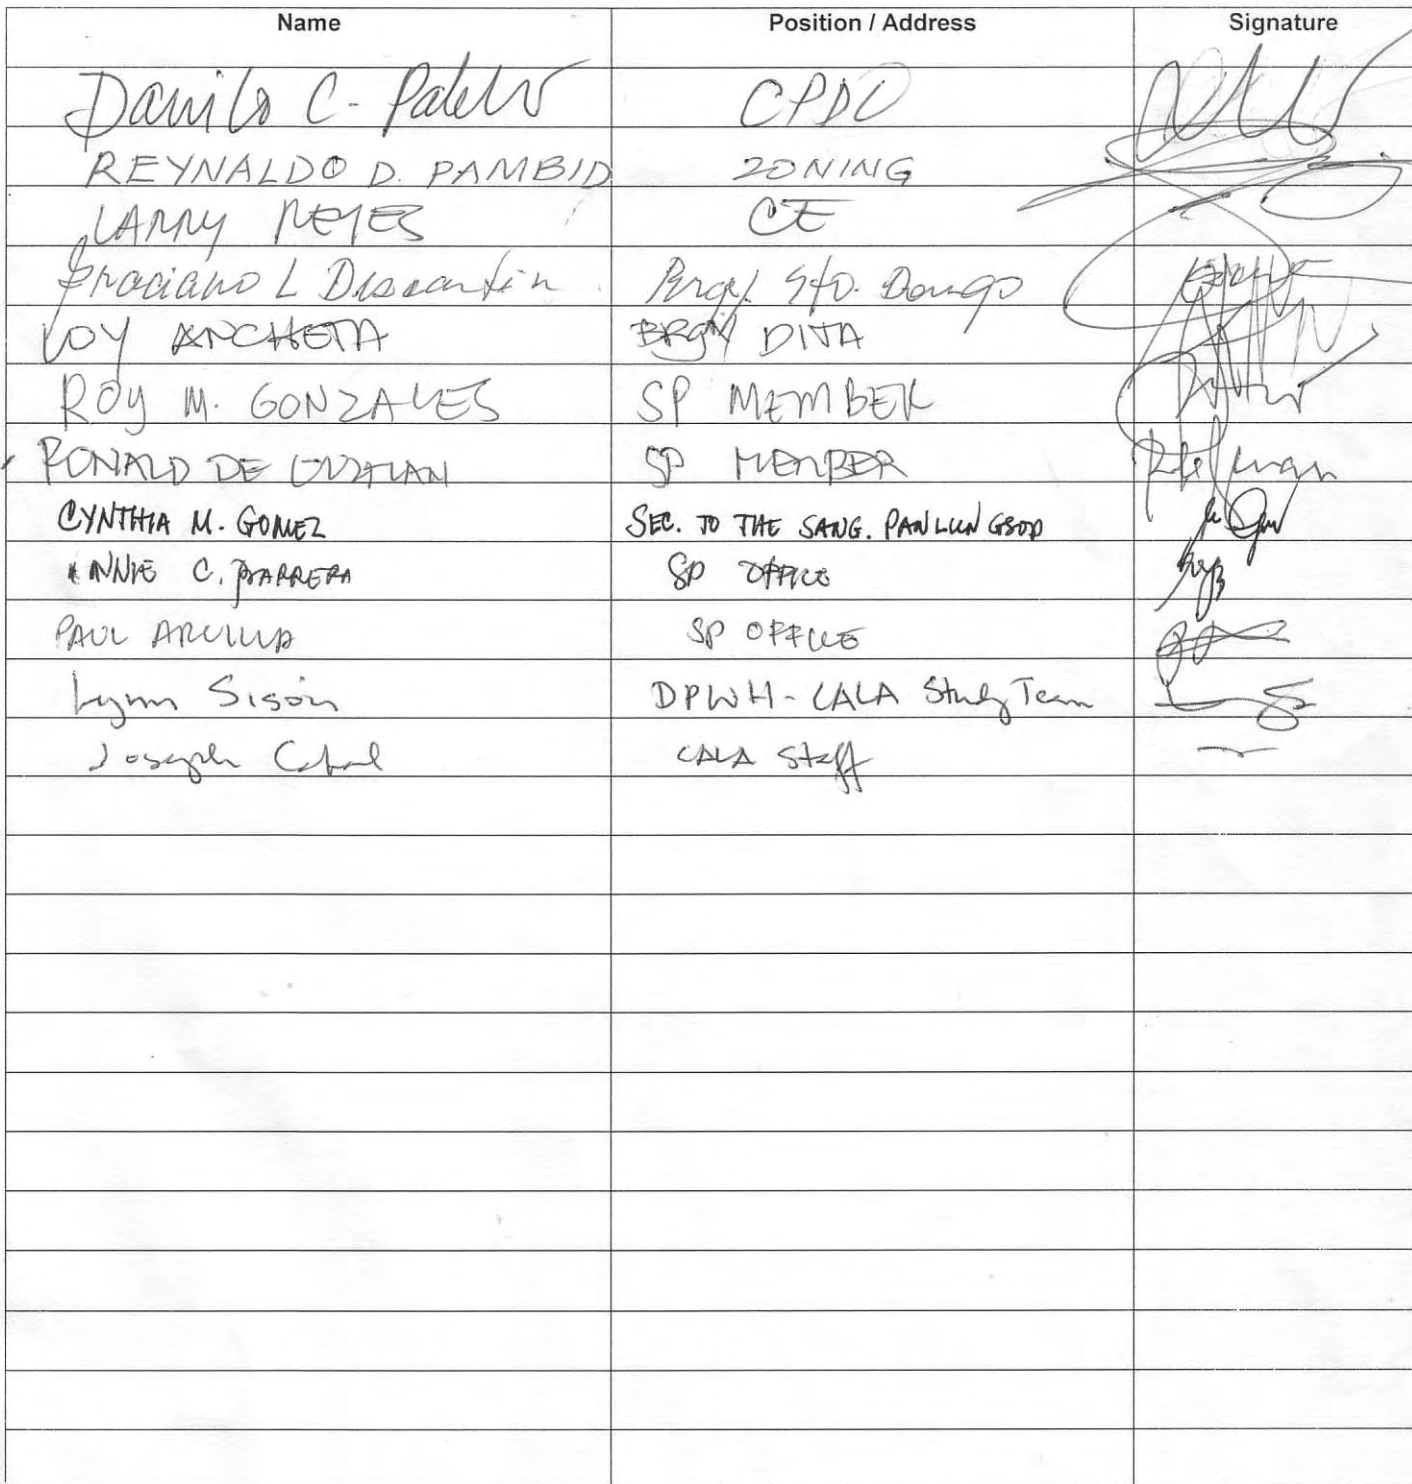 Name Position / Address Signature
Danilo C. CPDO
REYNALDO D. PAMBID ZONING
LARRY REYES CE
Graciano L Brgy. Sto. Domgo
LOY ANCHETA BRGY DITA
ROY M. GONZALES SP MEMBER
RONALD DE GUZMAN SP MEMBER
CYNTHIA M. GOMEZ SEC. TO THE SANG. PANLUNGSOD
ANNIE C. BARRERA SP OFFICE
PAUL SP OFFICE
Lynn Sison DPWH-CALA Study Team
Joseph CALA Staff